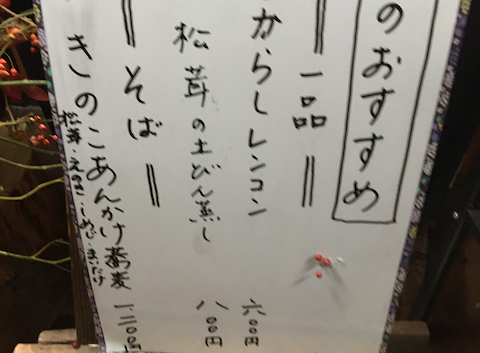 のおすすめ
一品
からしレンコン 六〇〇円
松茸の土びん蒸し 八〇〇円
そば
きのこあんかけ蕎麦 一、二〇〇円
松茸・えのき・しめじ・まいたけ